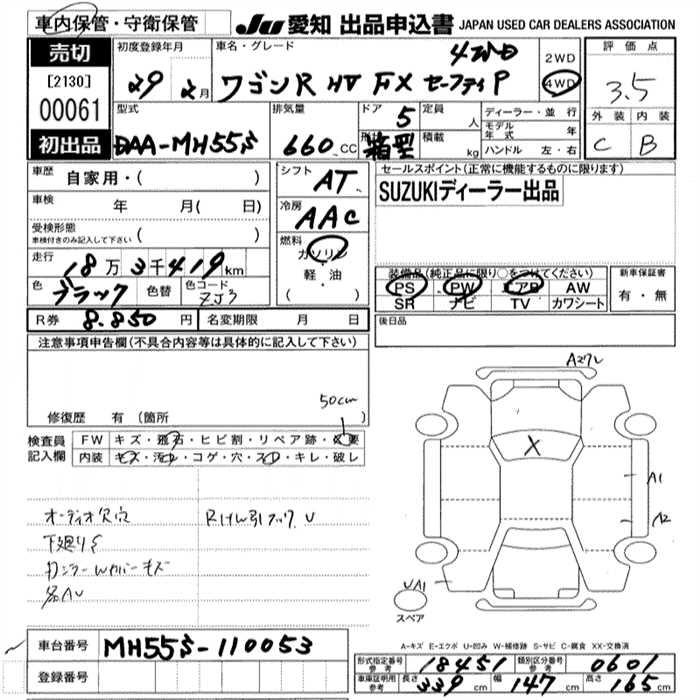 車内保管・守衛保管 JU 愛知 出品申込書 JAPAN USED CAR DEALERS ASSOCIATION
売切
[2130]
00061
初出品
初度登録年月 29 2月
車名・グレード 4WD
ワゴンR HV FX セーフティP
2WD
4WD
評価点
3.5
外装 内装
C B
型式 DAA-MH55S
排気量 660 CC
ドア 5
形状 箱型
定員 人
積載 kg
ディーラー・並行
モデル年式 年
ハンドル 左・右
車歴 自家用・( )
車検 年 月( 日)
受検形態
車検付きのみ記入して下さい ( )
走行 18万3千419km
色 ブラック 色替 色コード ZJ3
R券 8.850円 名変期限 月 日
シフト AT
冷房 AAC
燃料
ガソリン
・軽・油
・( )
セールスポイント(正常に機能するものに限ります)
SUZUKIディーラー出品
装備品(純正品に限り○をつけてください)
PS PW エアB AW
SR ナビ TV カワシート
新車保証書
有・無
後日品
注意事項申告欄(不具合内容等は具体的に記入して下さい)
修復歴 有(箇所
50cm
検査員記入欄
FW キズ・飛石・ヒビ割・リペア跡・必要
内装 キズ・汚れ・コゲ・穴・スレ・キレ・破レ
オーディオ欠穴
下廻りS
各AU
A1
A2
UA1
スペア
A-キズ E-エクボ U-凹み W-補修跡 S-サビ C-腐食 XX-交換済
車台番号 MH55S-110053
登録番号
形式指定番号 参考 18451
類別区分番号 参考 0601
車庫証明用 参考 長さ 339cm 幅 147cm 高さ 165cm